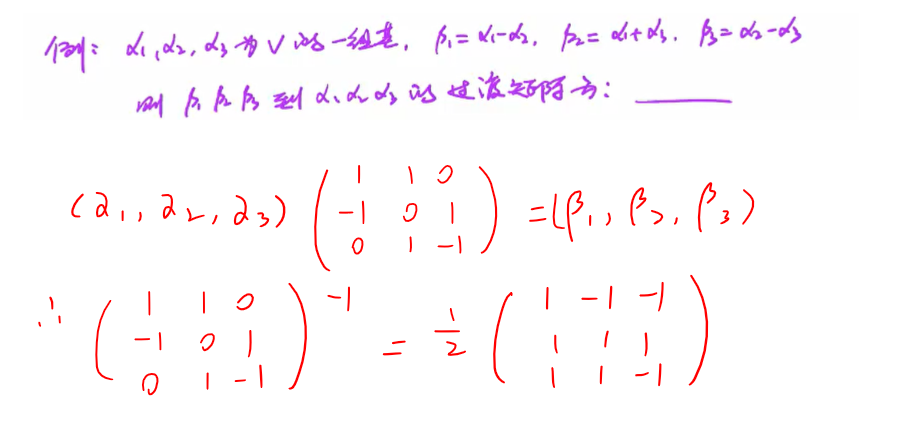 例: α₁,α₂,α₃为V的一组基, β₁=α₁-α₂, β₂=α₁+α₃, β₃=α₂-α₃
则 β₁ β₂ β₃ 到 α₁ α₂ α₃ 的过渡矩阵为: ______
(α₁, α₂, α₃) ( 1 1 0 ; -1 0 1 ; 0 1 -1 ) = (β₁, β₂, β₃)
∴ ( 1 1 0 ; -1 0 1 ; 0 1 -1 )⁻¹ = 1/2 ( 1 -1 -1 ; 1 1 1 ; 1 1 -1 )